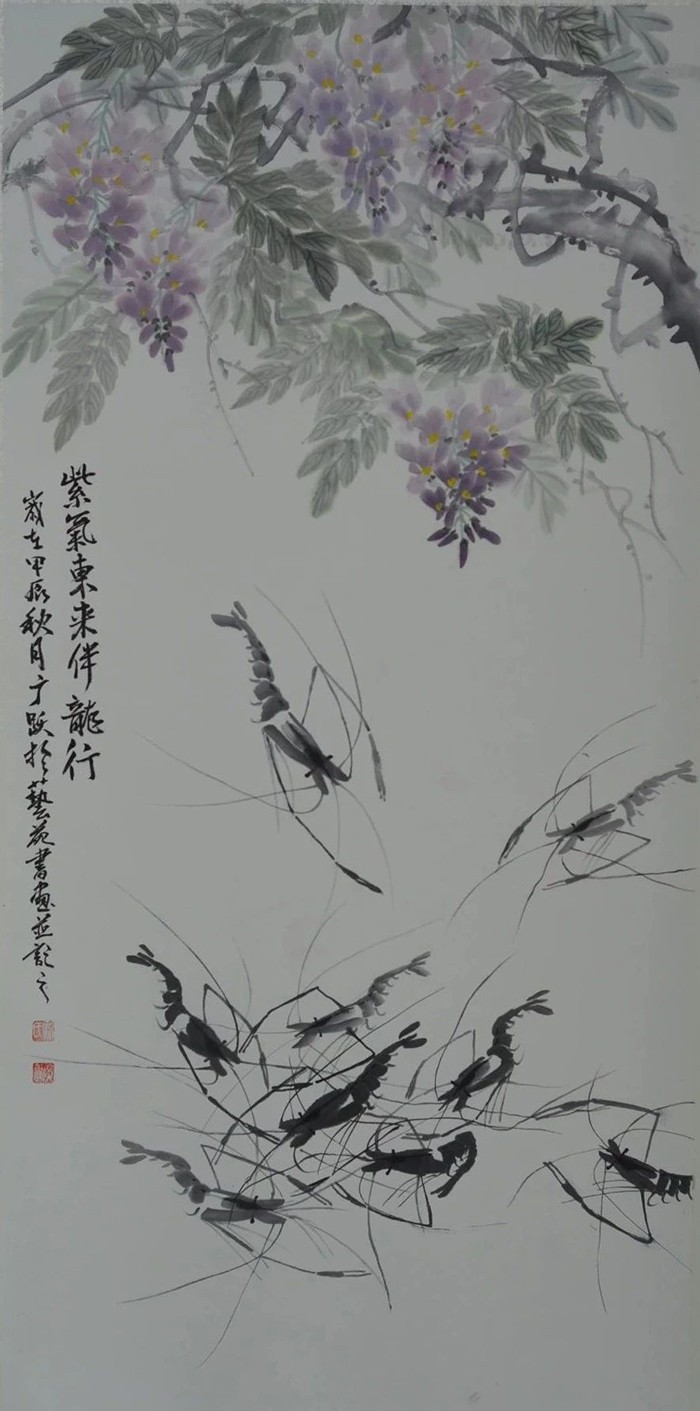 紫氣東来伴龍行
歲在甲辰秋月方跃於藝苑書畫並記之